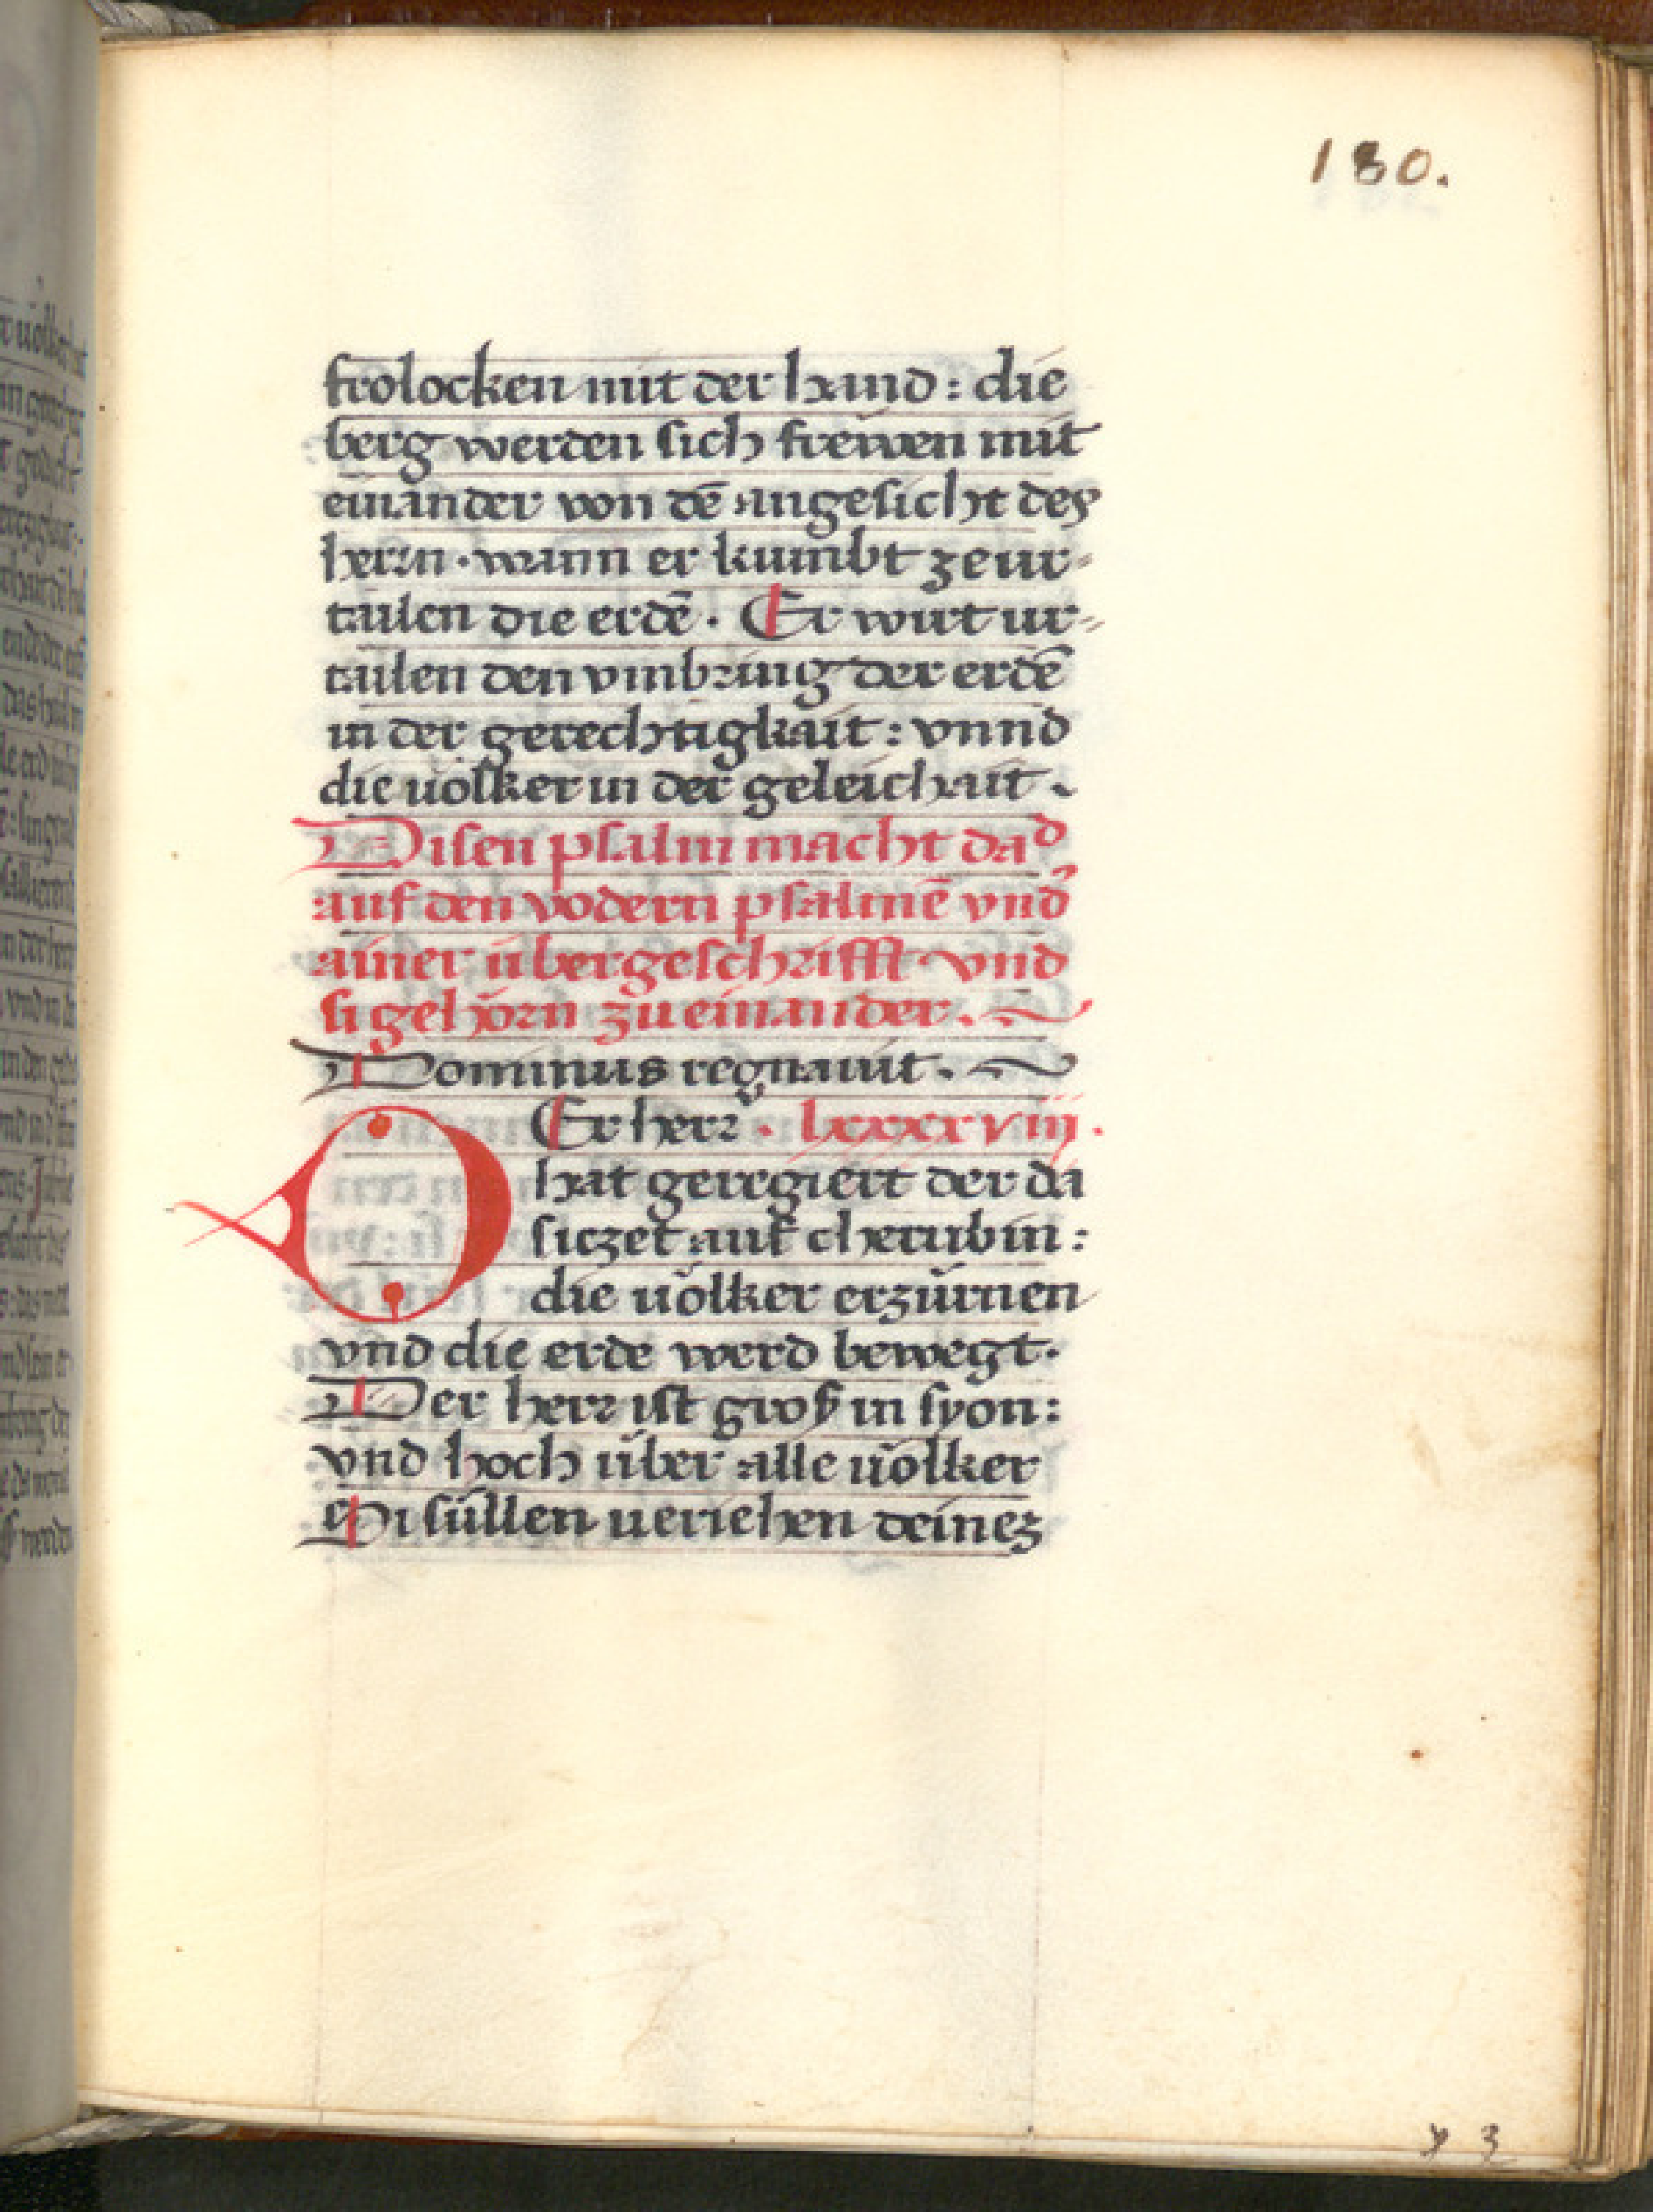 180.
frolocken mit der hand : die
berg werden sich frewen mit
einander von dē angesicht des
herrn · wann er kumbt ze ur⸗
tailen die erdē · Er wirt ur⸗
tailen den vmbring der erdē
in der gerechtigkait : vnnd
die uölker in der geleichait ·
Disen psalm macht dad
auf den vodern psalmē vnd
ainer übergeschrifft vnd
si gehörn zu einander .
Dominus regnauit .
DEr herr · lxxxxviij .
hat geregiert der da
siczet auf cherubin :
die uölker erzürnen
vnd die erde werd bewegt .
Der herr ist groß in syon :
vnd hoch über alle uölker
Si süllen ueriehen deinez
y 3